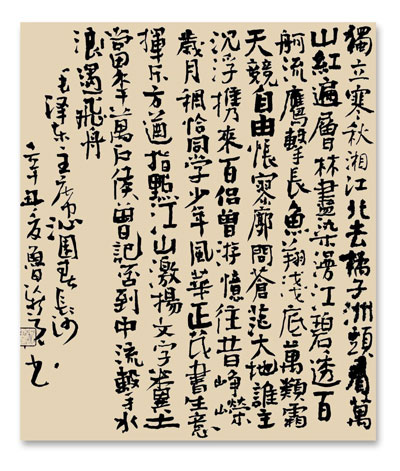 獨立寒秋湘江北去橘子洲頭看萬
山紅遍層林盡染漫江碧透百
舸流鷹擊長魚翔淺底萬類霜
天競自由悵寥廓問蒼茫大地誰主
沉浮携來百侶曾游憶往昔崢嶸
歲月稠恰同学少年風華正茂書生意
揮斥方遒指點江山激揚文字糞土
當年萬户侯曾記否到中流擊水
浪遏飛舟
毛泽东主席沁園春長沙
辛丑夏魯新书